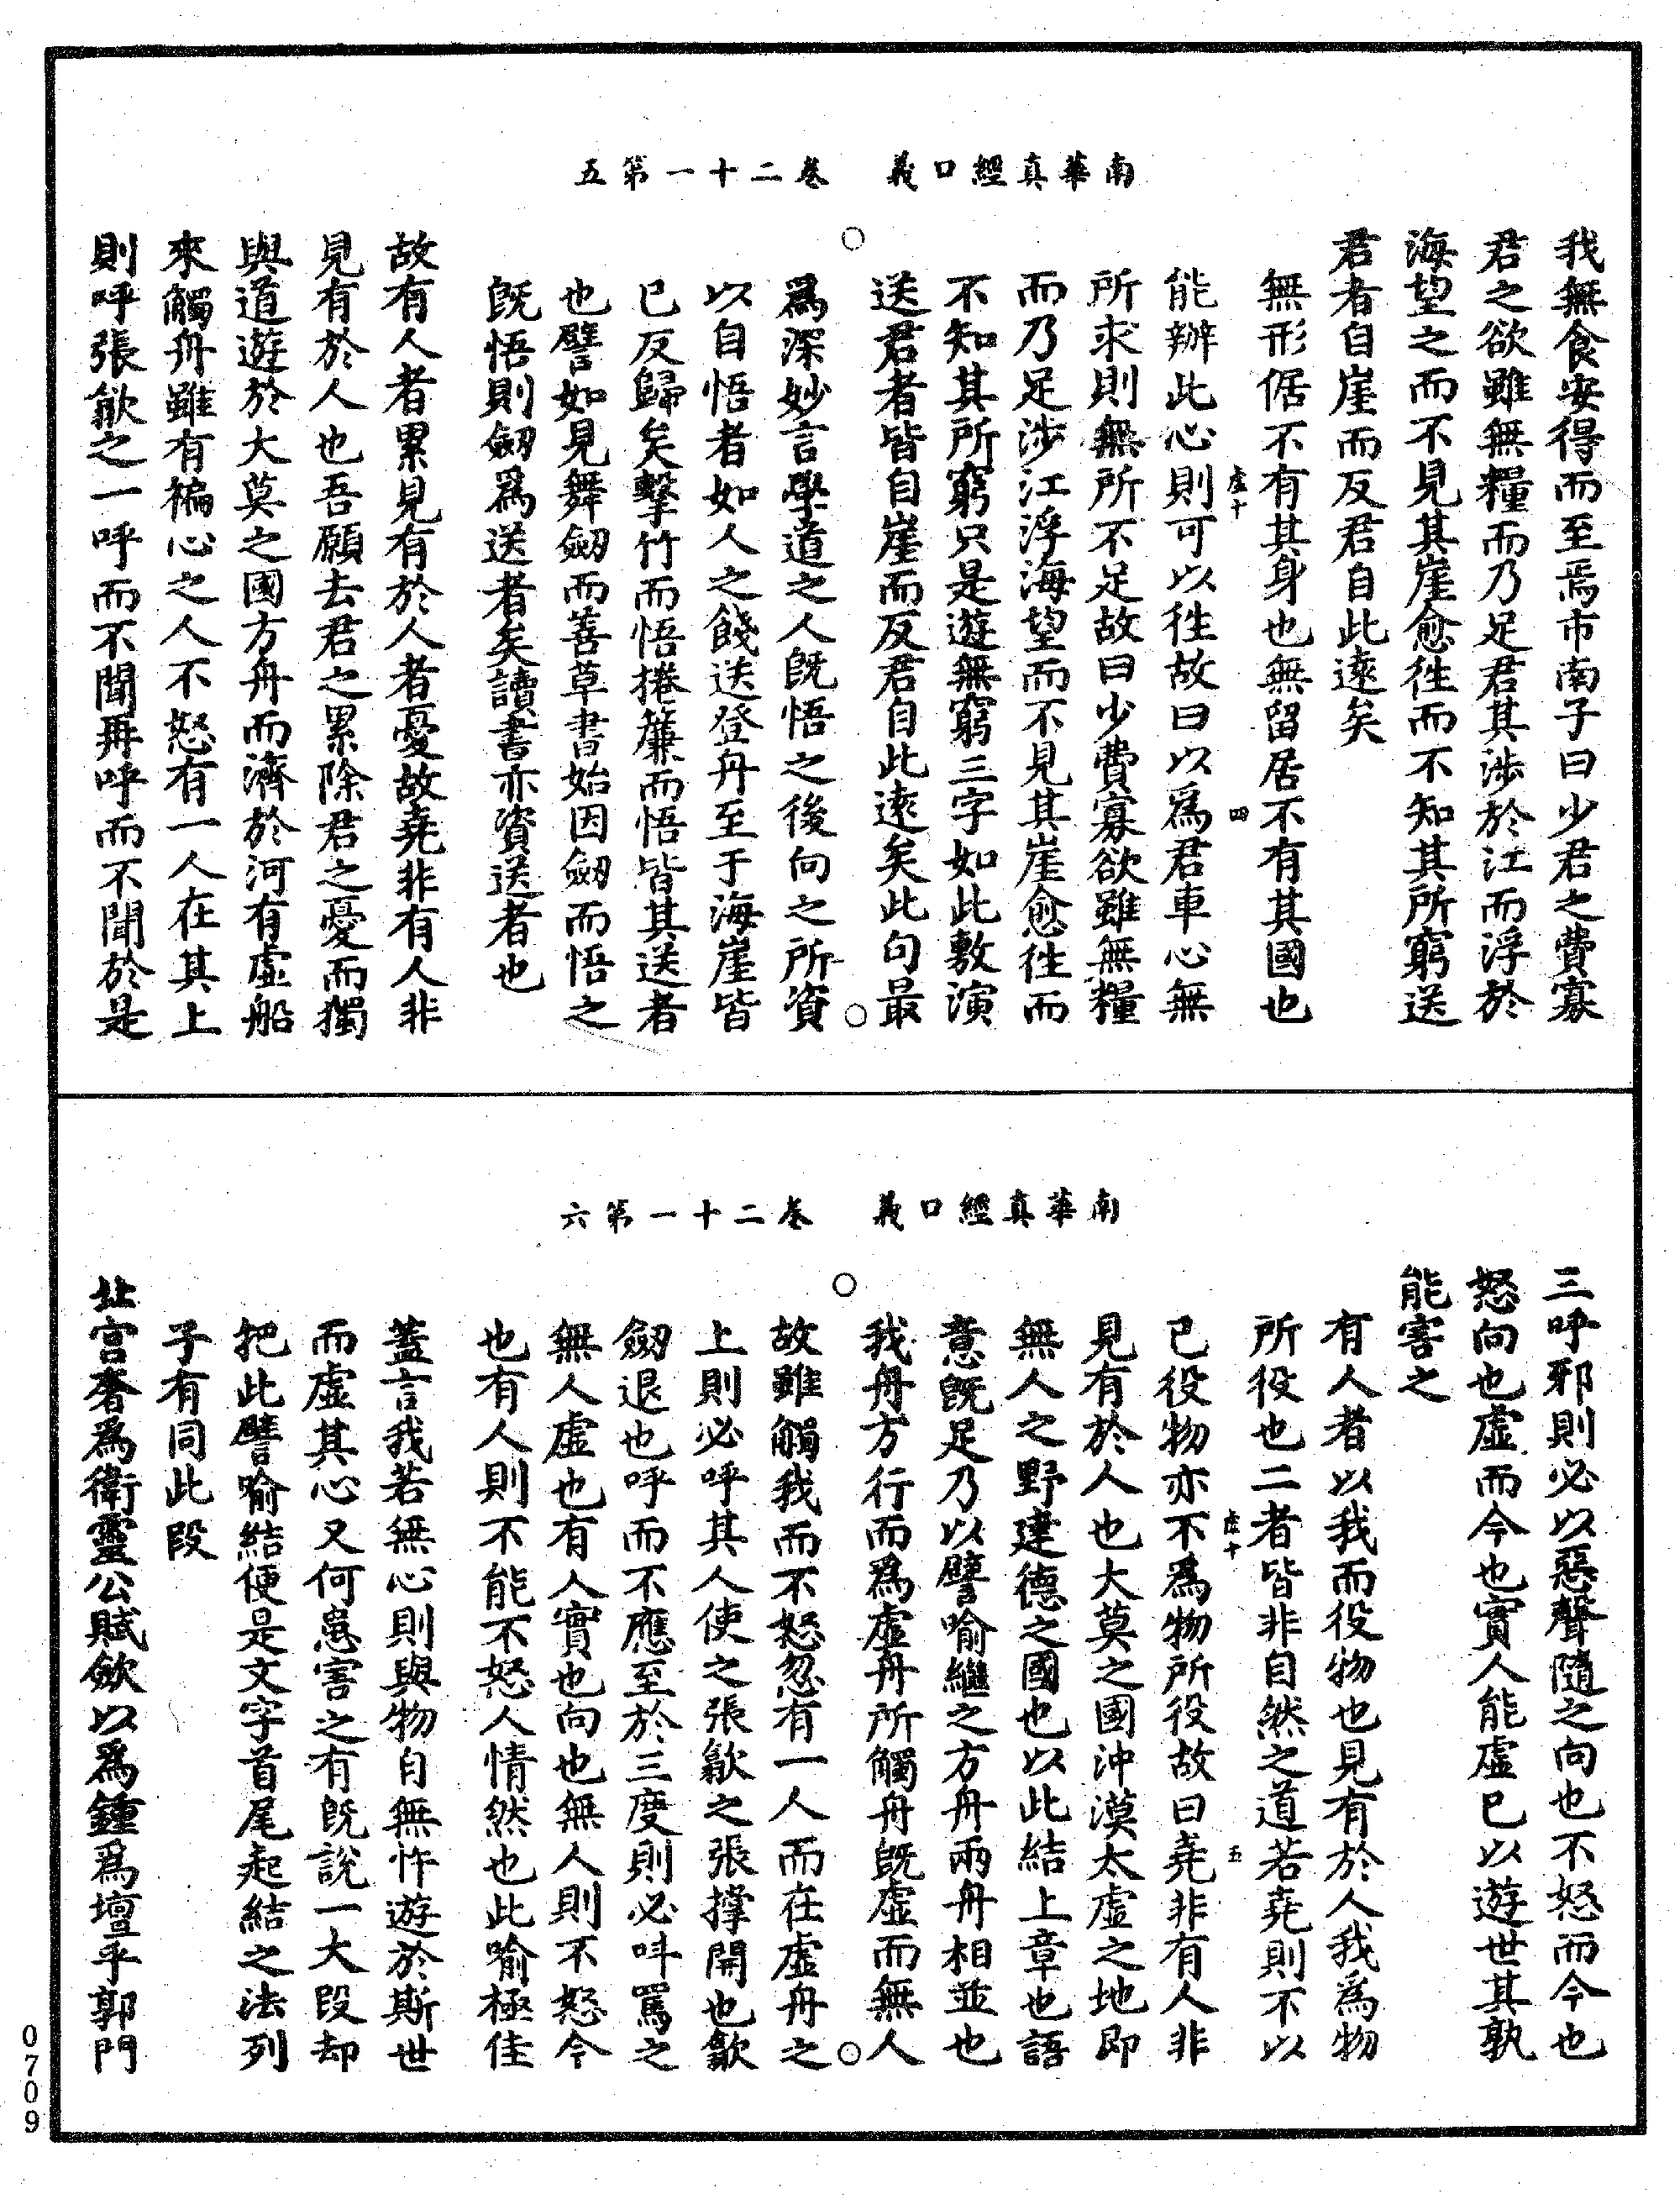 南華真經口義　卷二十一第五
我無食安得而至焉市南子曰少君之費寡
君之欲雖無糧而乃足君其涉於江而浮於
海望之而不見其崖愈徃而不知其所窮送
君者自崖而反君自此遠矣
無形倨不有其身也無留居不有其國也
虛十　四
能辦此心則可以徃故曰以爲君車心無
所求則無所不足故曰少費寡欲雖無糧
而乃足涉江浮海望而不見其崖愈徃而
不知其所窮只是遊無窮三字如此敷演
送君者皆自崖而反君自此遠矣此句最
爲深妙言學道之人旣悟之後向之所資
以自悟者如人之餞送登舟至于海崖皆
已反歸矣擊竹而悟捲簾而悟皆其送者
也譬如見舞劒而善草書始因劒而悟之
旣悟則劒爲送者矣讀書亦資送者也
故有人者累見有於人者憂故堯非有人非
見有於人也吾願去君之累除君之憂而獨
與道遊於大莫之國方舟而濟於河有虛船
來觸舟雖有褊心之人不怒有一人在其上
則呼張歙之一呼而不聞再呼而不聞於是
南華真經口義　卷二十一第六
三呼邪則必以惡聲隨之向也不怒而今也
怒向也虛而今也實人能虛已以遊世其孰
能害之
有人者以我而役物也見有於人我爲物
所役也二者皆非自然之道若堯則不以
虛十　五
已役物亦不爲物所役故曰堯非有人非
見有於人也大莫之國沖漠太虛之地即
無人之野建德之國也以此結上章也語
意旣足乃以譬喻繼之方舟兩舟相並也
我舟方行而爲虛舟所觸舟旣虛而無人
故雖觸我而不怒忽有一人而在虛舟之
上則必呼其人使之張歙之張撑開也歙
劒退也呼而不應至於三度則必呌罵之
無人虛也有人實也向也無人則不怒今
也有人則不能不怒人情然也此喻極佳
蓋言我若無心則與物自無忤遊於斯世
而虛其心又何患害之有旣說一大段却
把此譬喻結便是文字首尾起結之法列
子有同此段
北宮奢爲衛靈公賦斂以爲鍾爲壇乎郭門
0709